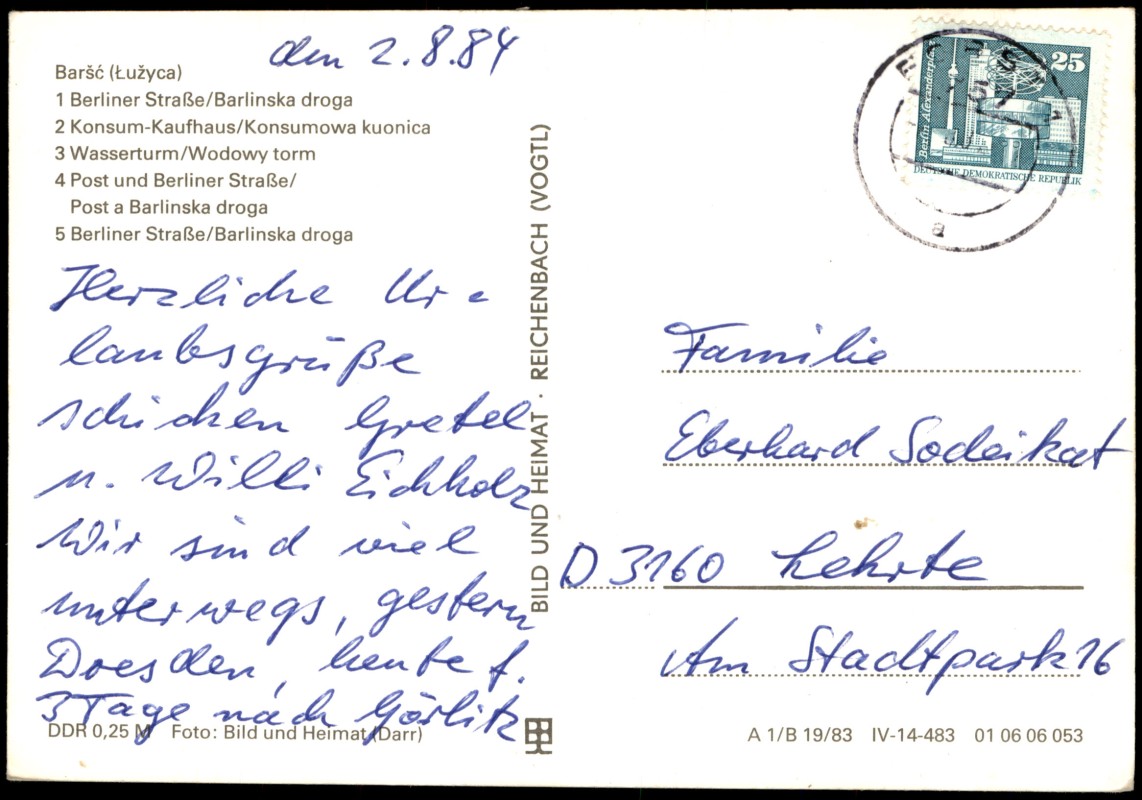 den 2.8.84
Baršć (Łužyca)
1 Berliner Straße/Barlinska droga
2 Konsum-Kaufhaus/Konsumowa kuonica
3 Wasserturm/Wodowy torm
4 Post und Berliner Straße/
Post a Barlinska droga
5 Berliner Straße/Barlinska droga
Herzliche Ur-
laubsgrüße
schicken Gretel
u. Willi Eichholz
Wir sind viel
unterwegs, gestern
Dresden, heute f.
3 Tage nach Görlitz
DDR 0,25 M Foto: Bild und Heimat (Darr)
BILD UND HEIMAT · REICHENBACH (VOGTL)
25
Berlin Alexanderplatz
DEUTSCHE DEMOKRATISCHE REPUBLIK
a
Familie
Eberhard Sodeikat
D 3160 Lehrte
Am Stadtpark 16
A 1/B 19/83 IV-14-483 01 06 06 053